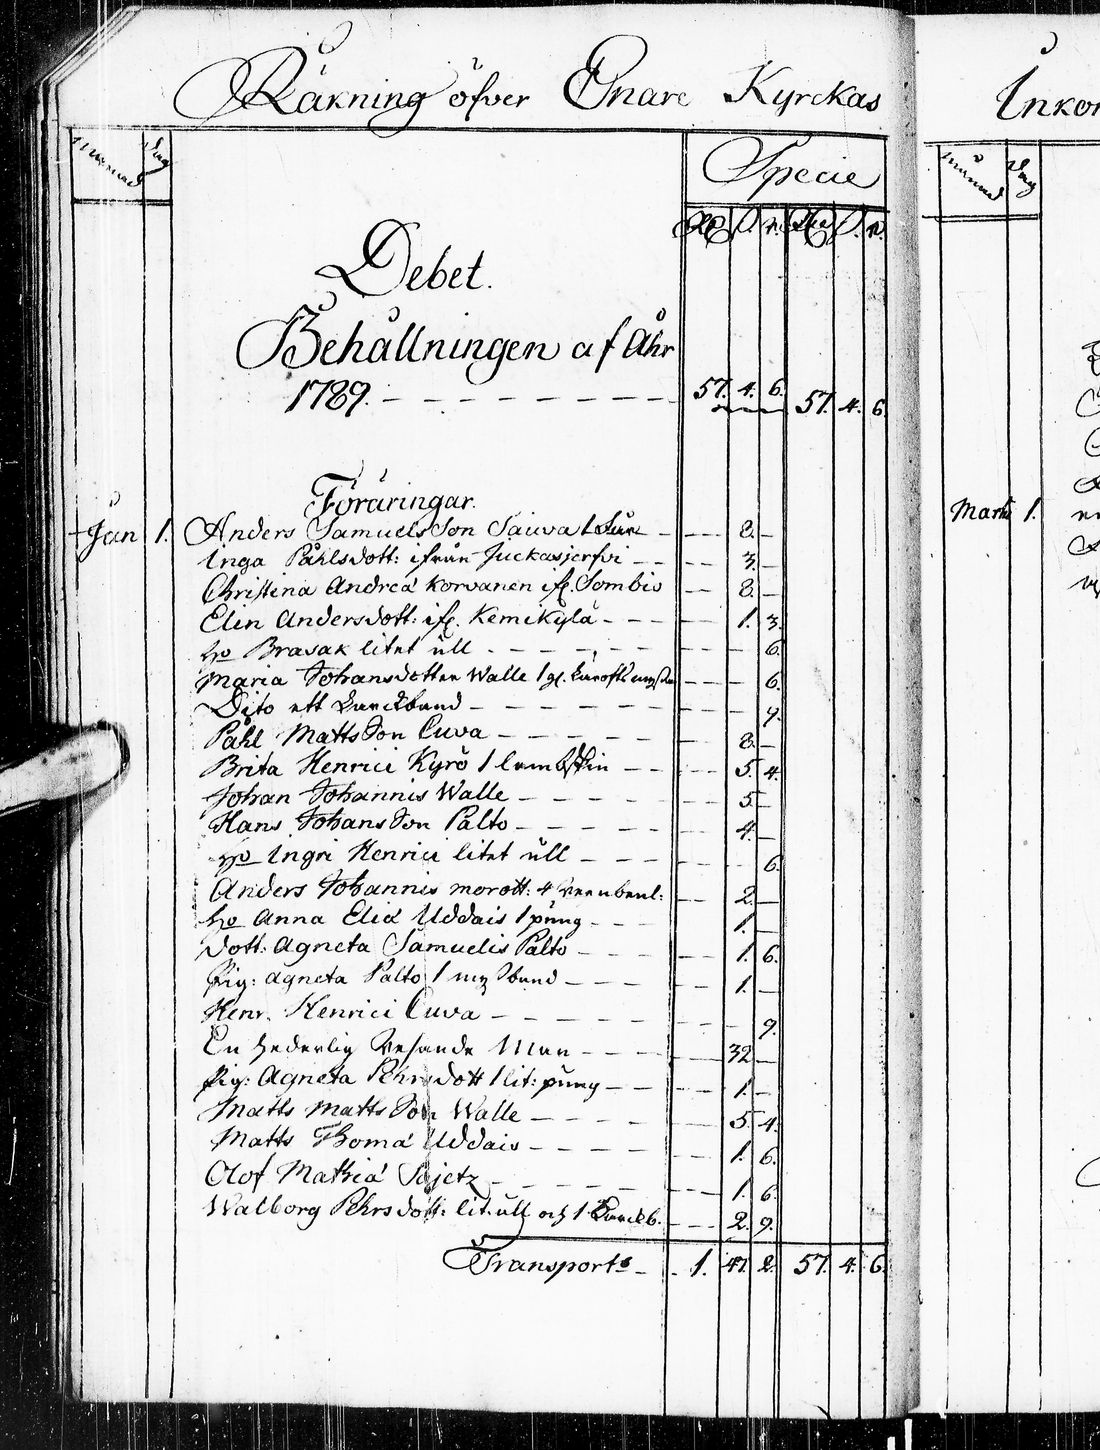 Räkning öfver Enare Kyrckas
Månad Dag
Specie
Debet.
Behållningen af Åhr
1789. 57. 4. 6. 57. 4. 6.
Föräringar.
Jan 1. Anders Samuels Son Sauva 1 8.
Inga Påhlsdott: ifrån Juckasjerfvi 3.
Christina Andreæ Korvanen ifr. Sombio 8.
Elin Andersdott: ifr. Kemikylä 1. 3.
ho Brasak litet ull 6.
Maria Johansdotter Walle 1 gl. 6.
Dito ett 9.
Påhl Matts Son Cuva 8.
Brita Henrici Kyrö 1 lambskin 5. 4.
Johan Johannis Walle 5.
Hans Johans Son Palto 4.
ho Ingri Henrici litet ull 6.
Anders Johannis morott: 4 2.
ho Anna Eliæ Uddais 1 pung 1.
dott: Agneta Samuelis Palto 1. 6.
Pig: Agneta Palto 1 band 1.
Henr. Henrici Cuva 9.
En hederlig Resande Man 32
Pig: Agneta Pehrsdott 1 lit: pung 1.
Matts Matts Son Walle 5. 4.
Matts Thomæ Uddais 1. 6.
Olof Mathiæ Sajetz 1. 6.
Walborg Pehrs dott: lit: ull och 1 2. 9.
Transport 1. 47. 2. 57. 4. 6.
Inkom
Månad Dag
Marti 1.